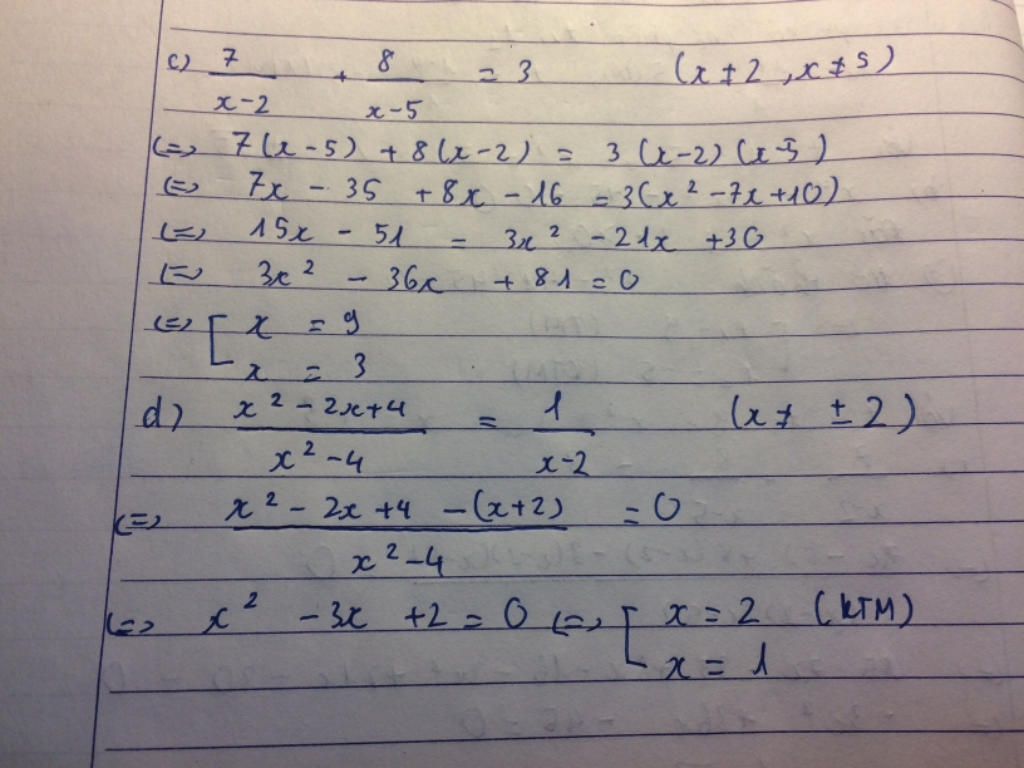 c) 7/(x-2) + 8/(x-5) = 3 (x ≠ 2, x ≠ 5)
(=) 7(x-5) + 8(x-2) = 3(x-2)(x-5)
(=) 7x - 35 + 8x - 16 = 3(x² - 7x + 10)
(=) 15x - 51 = 3x² - 21x + 30
(=) 3x² - 36x + 81 = 0
(=) [ x = 9
x = 3
d) (x² - 2x + 4)/(x² - 4) = 1/(x-2) (x ≠ ± 2)
(=) (x² - 2x + 4 - (x+2))/(x² - 4) = 0
(=) x² - 3x + 2 = 0 (=) [ x = 2 (KTM)
x = 1